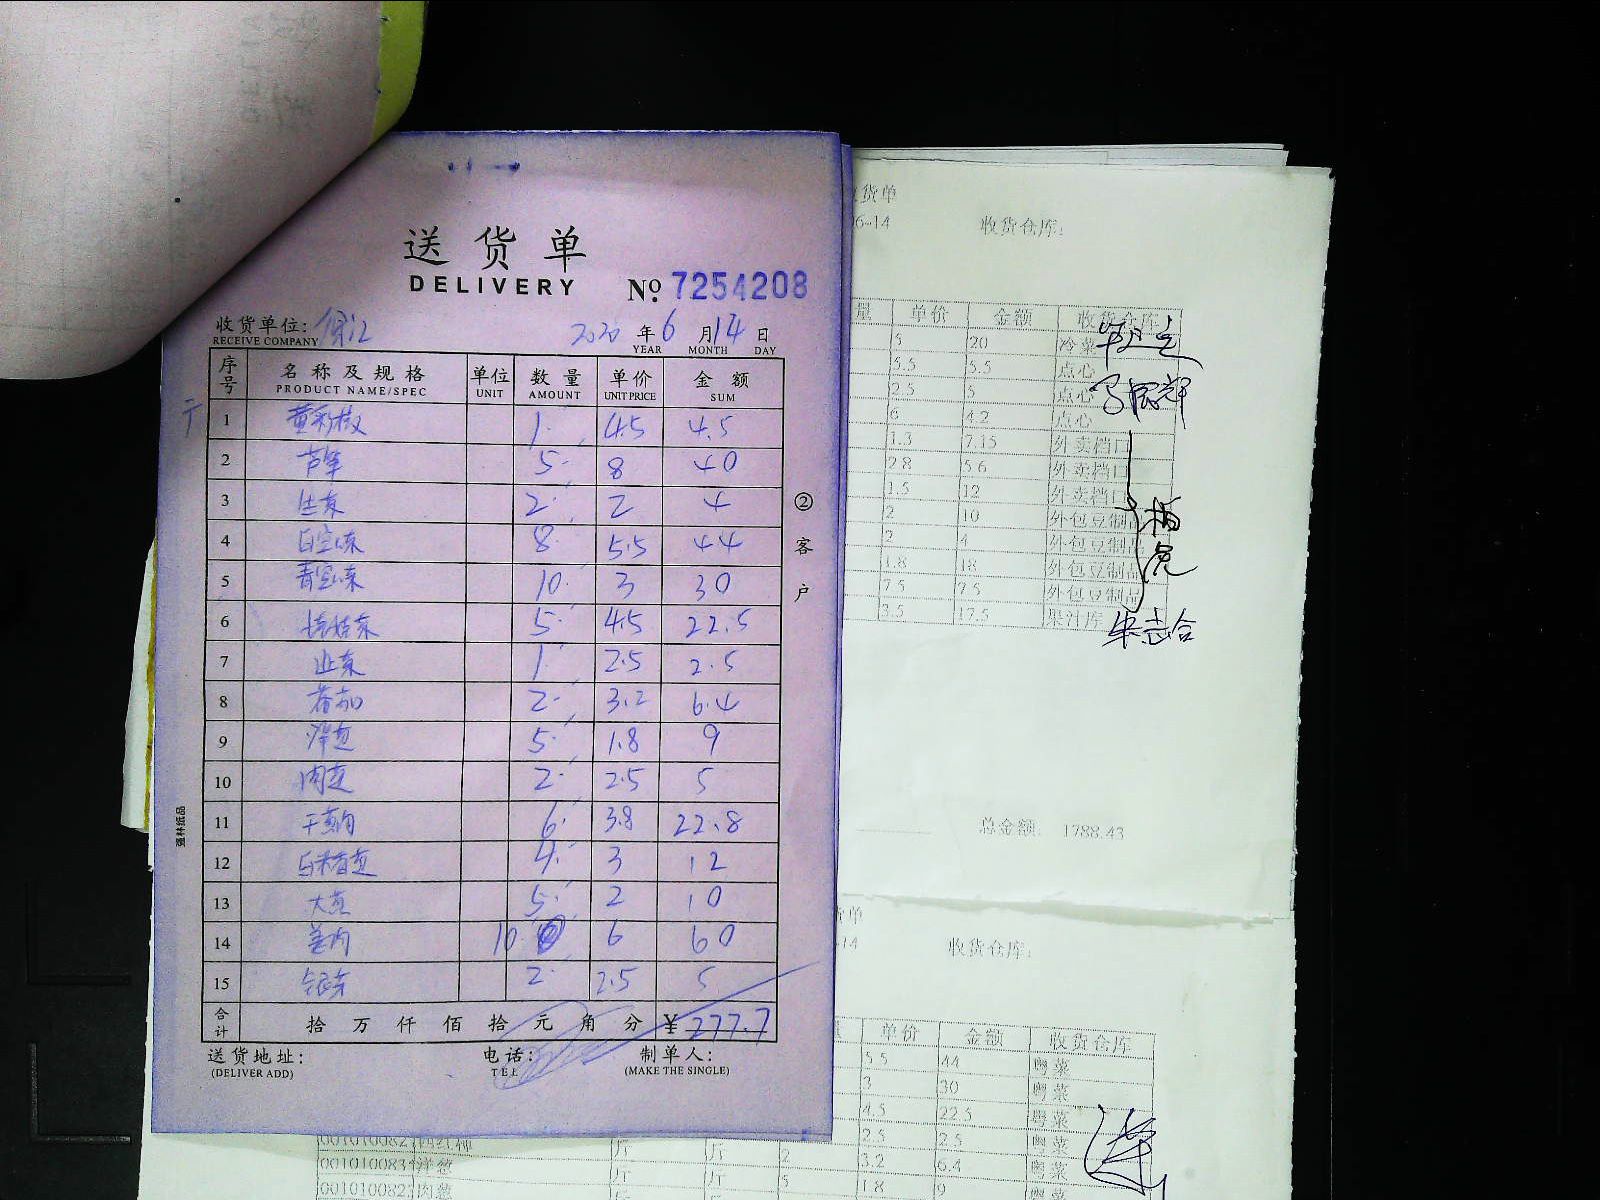 送货单
DELIVERY
No 7254208
收货单位:
RECEIVE COMPANY
2020 年 6 月 14 日
YEAR MONTH DAY
序号 名称及规格 单位 数量 单价 金额
PRODUCT NAME/SPEC UNIT AMOUNT UNIT PRICE SUM
1 黄彩椒 1 4.5 4.5
2 芦笋 5 8 40
3 生菜 2 2 4
4 白豆蔬 8 5.5 44
5 3 10 30
6 5 4.5 22.5
7 1 2.5 2.5
8 番茄 2 3.2 6.4
9 洋葱 5 1.8 9
10 肉葱 2 2.5 5
11 干葱肉 6 3.8 22.8
12 白米香葱 4 3 12
13 大葱 5 2 10
14 姜肉 10 6 60
15 2 2.5 5
合计 拾万仟佰拾元角分 ¥277.7
送货地址: 电话: 制单人:
(DELIVER ADD) TEL (MAKE THE SINGLE)
②客户
强林纸品
货单
6-14 收货仓库:
量 单价 金额 收货仓库
5 20 冷菜
5.5 5.5 点心
2.5 5 点心
6 4.2 点心
1.3 7.15 外卖档口
2.8 5.6 外卖档口
1.5 12 外卖档口
2 10 外包豆制品
2 4 外包豆制品
1.8 18 外包豆制品
7.5 7.5 外包豆制品
3.5 17.5 果汁库
朱志合
总金额: 1788.43
货单
-14 收货仓库:
单价 金额 收货仓库
5.5 44 粤菜
3 30 粤菜
4.5 22.5 粤菜
2.5 2.5 粤菜
斤 斤 2 3.2 6.4 粤菜
洋葱 斤 斤 5 1.8 9 粤菜
肉葱